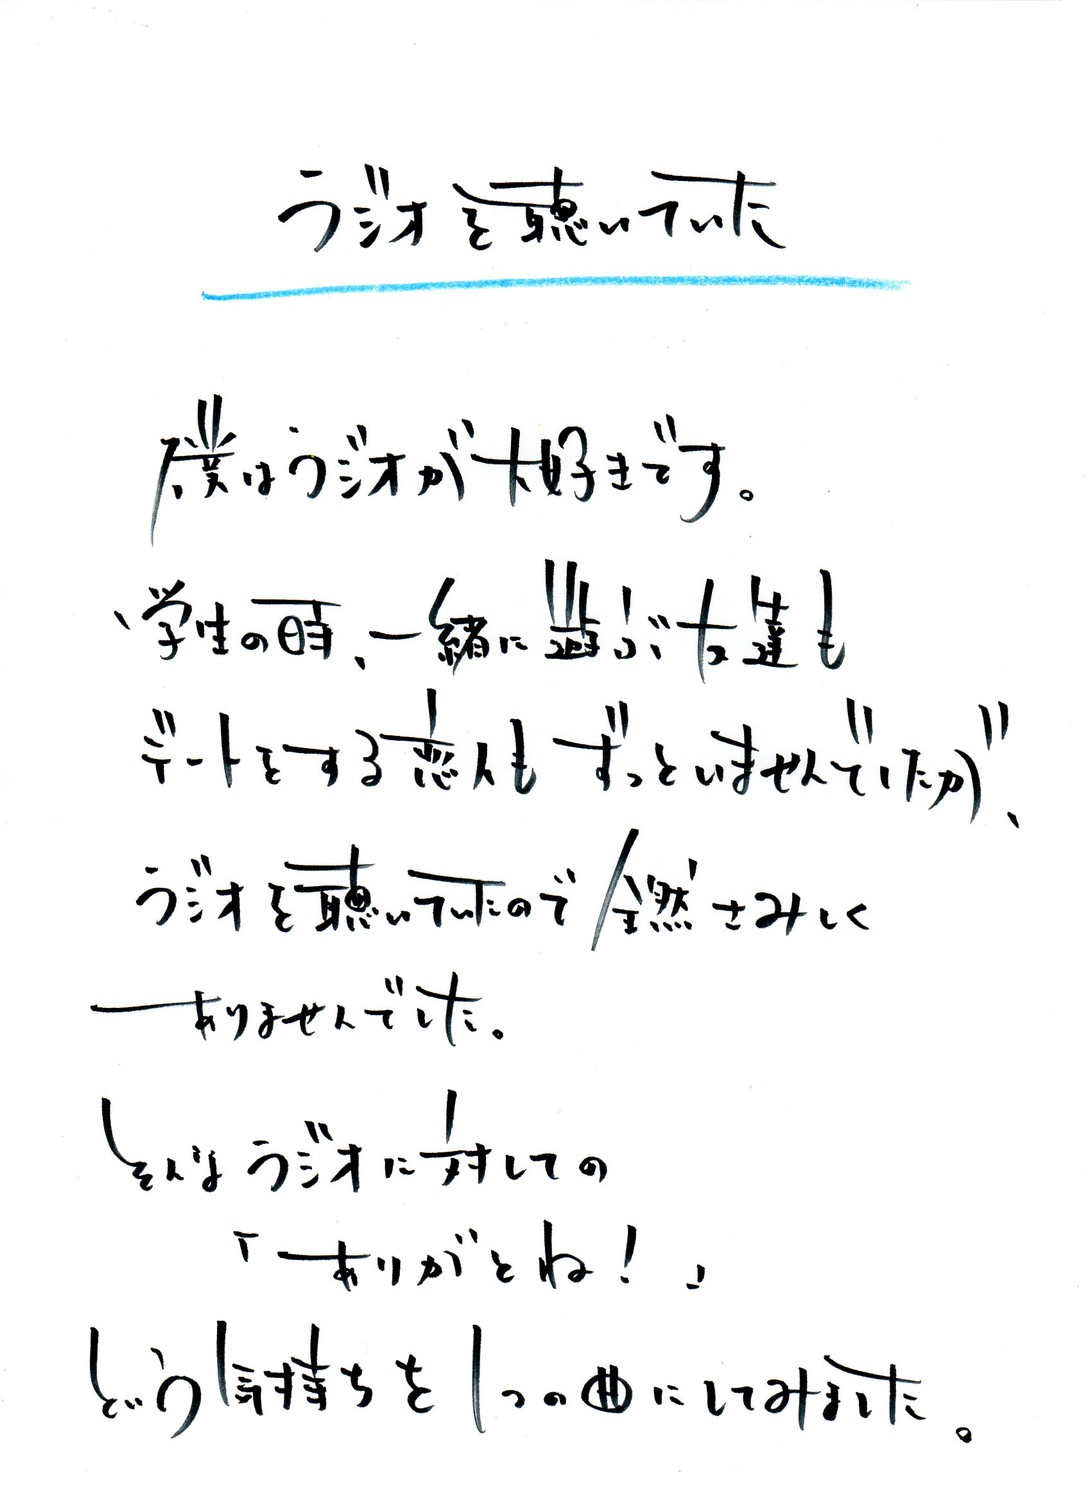 ラジオを聴いていた
僕はラジオが大好きです。
学生の時、一緒に遊ぶ友達も
デートをする恋人もずっといませんでしたが、
ラジオを聴いていたので全然さみしく
ありませんでした。
そんなラジオに対しての
「ありがとね！」
という気持ちを1つの曲にしてみました。